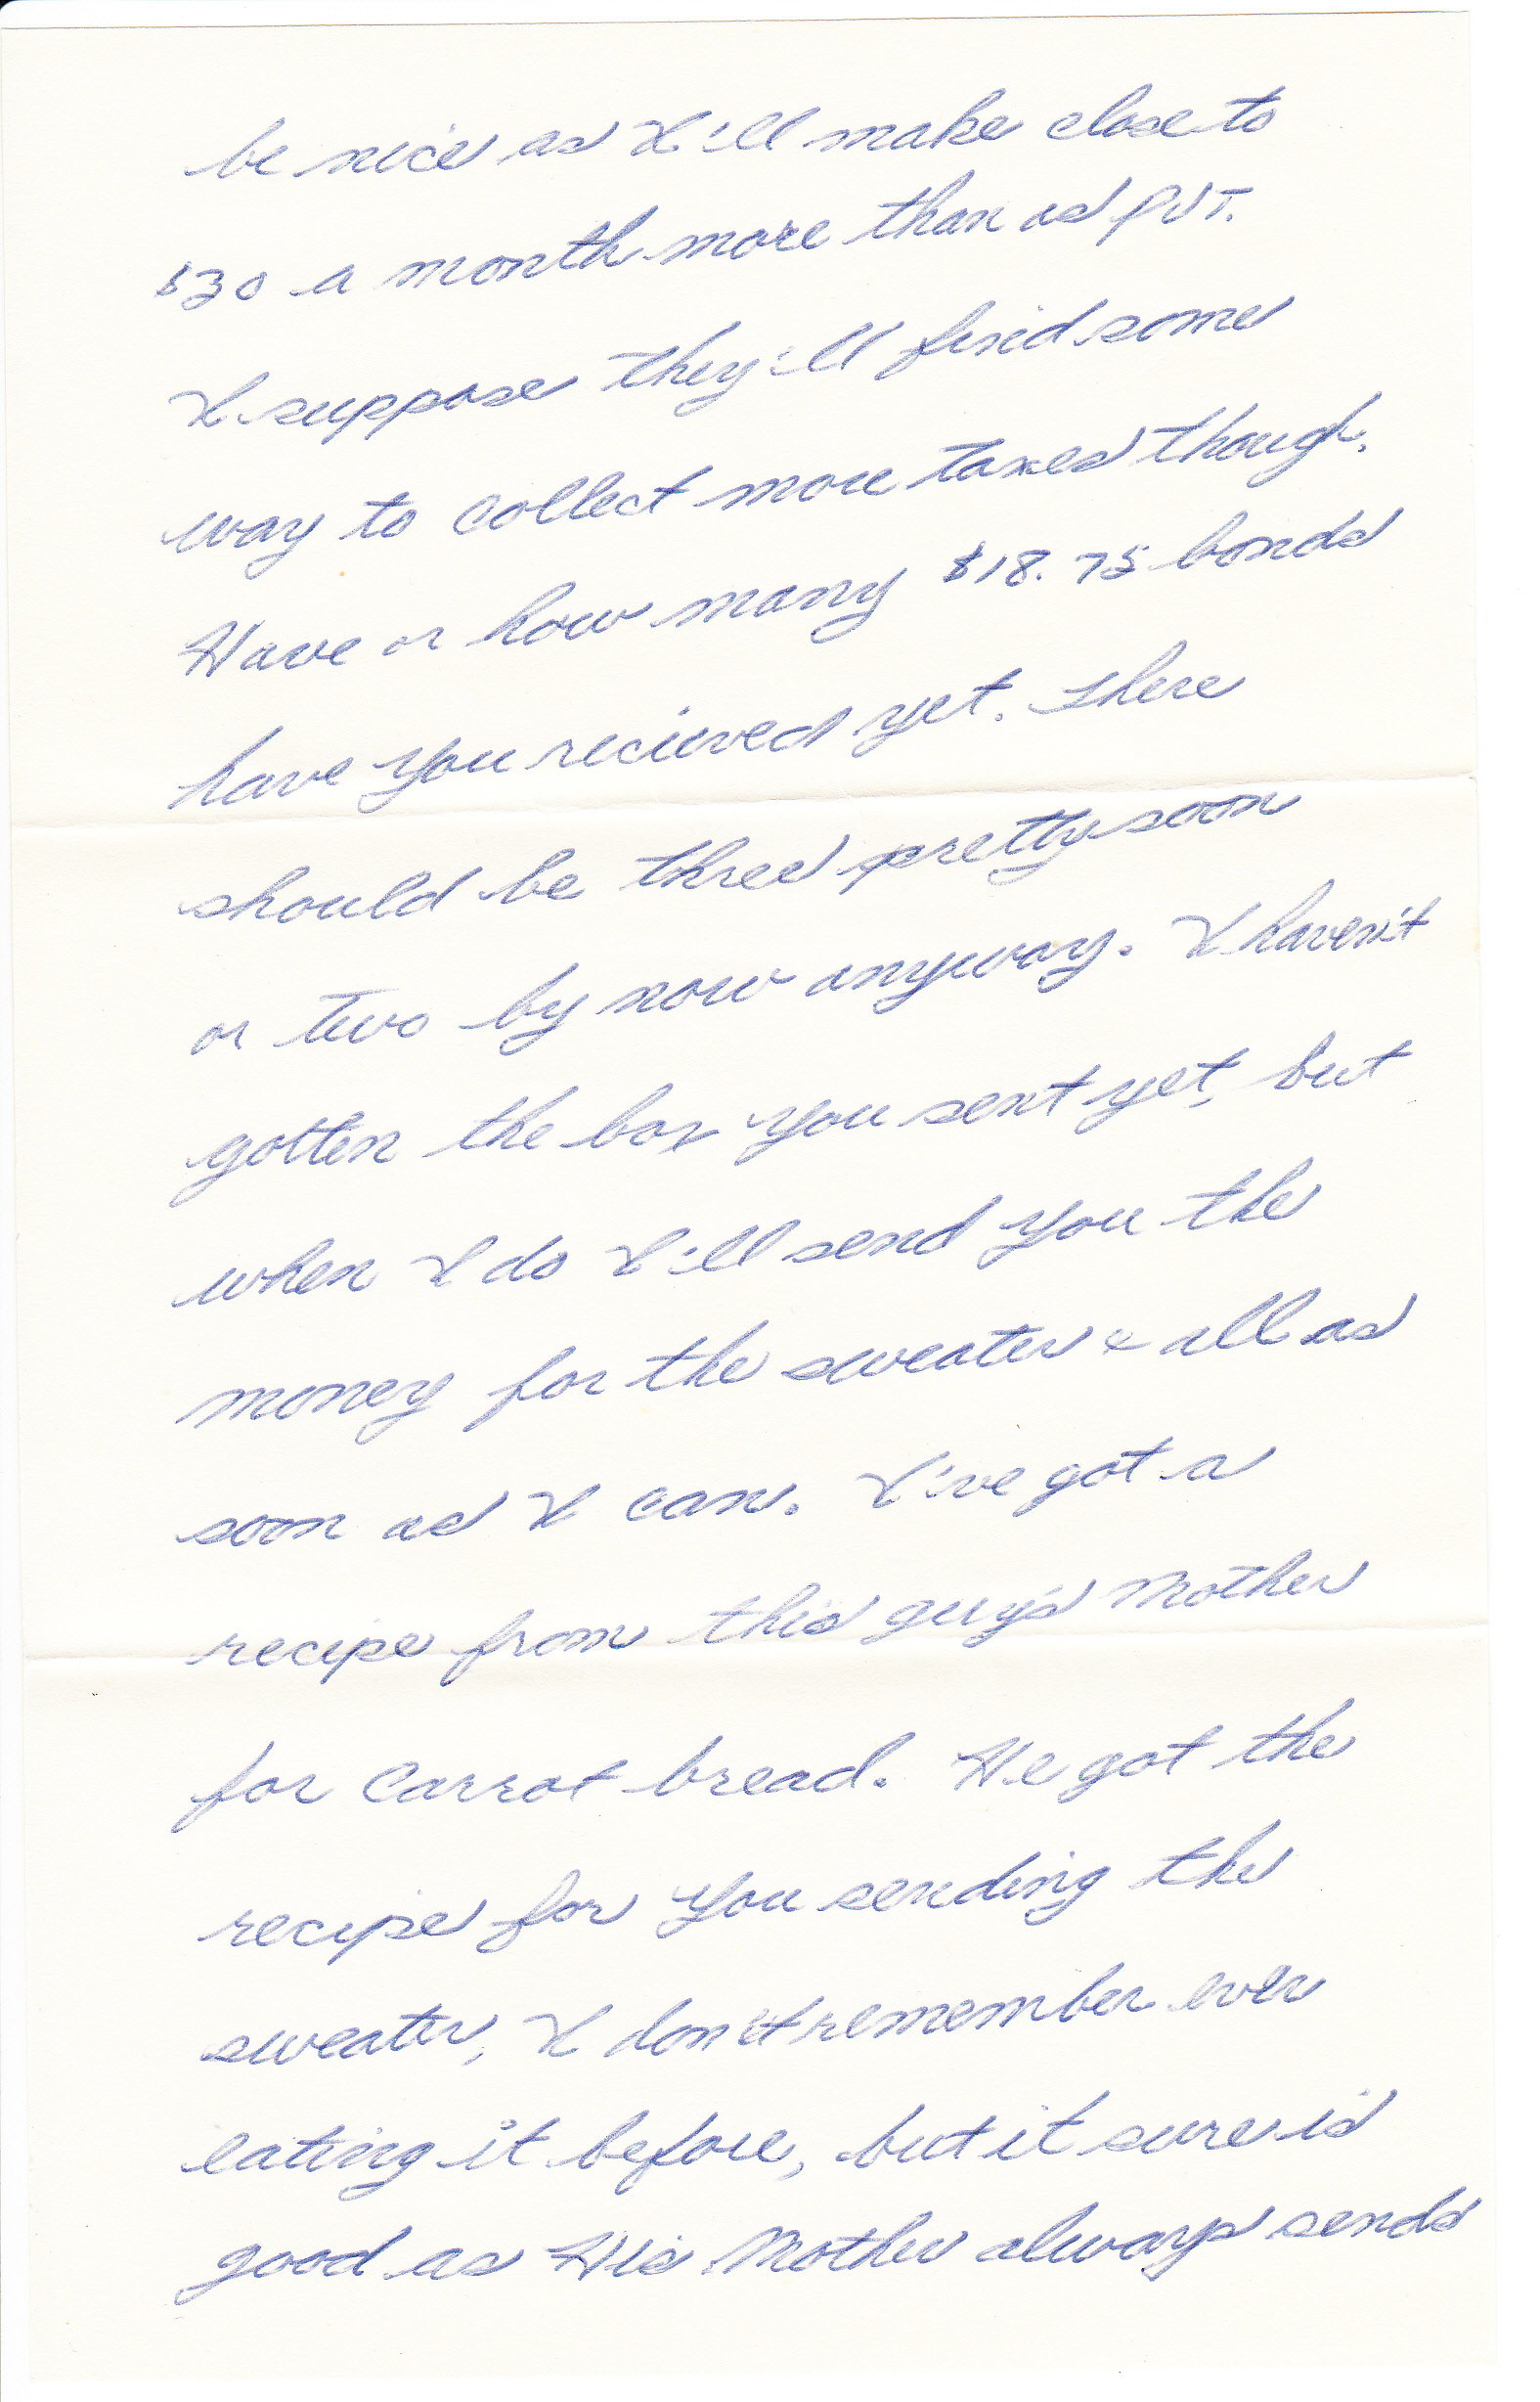 be nice as I'll make close to
$30 a month more than as PVT.
I suppose they'll find some
way to collect more taxes though.
Have or how many $18.75 bonds
have you recieved yet. There
should be three pretty soon
or two by now anyway. I haven't
gotten the box you sent yet, but
when I do I'll send you the
money for the sweater & all as
soon as I can. I've got a
recipe from this guy's Mother
for Carrot bread. He got the
recipe for you sending the
sweater, I don't remember ever
eating it before, but it sure is
good as His Mother always sends